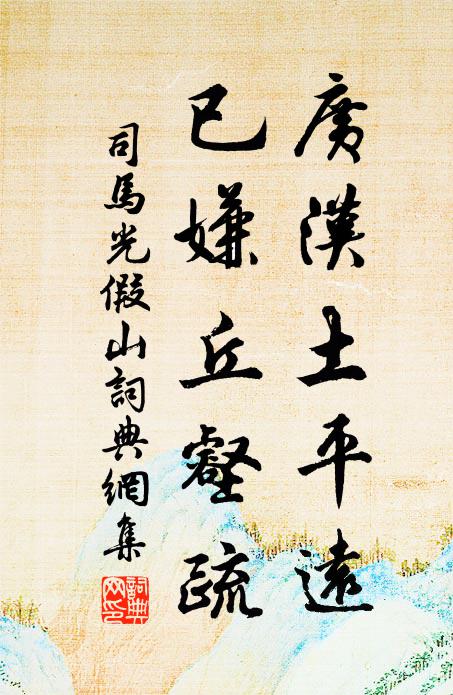 廣漢土平遠
已嫌丘壑疏
司馬光假山詞典網集
詞典网印